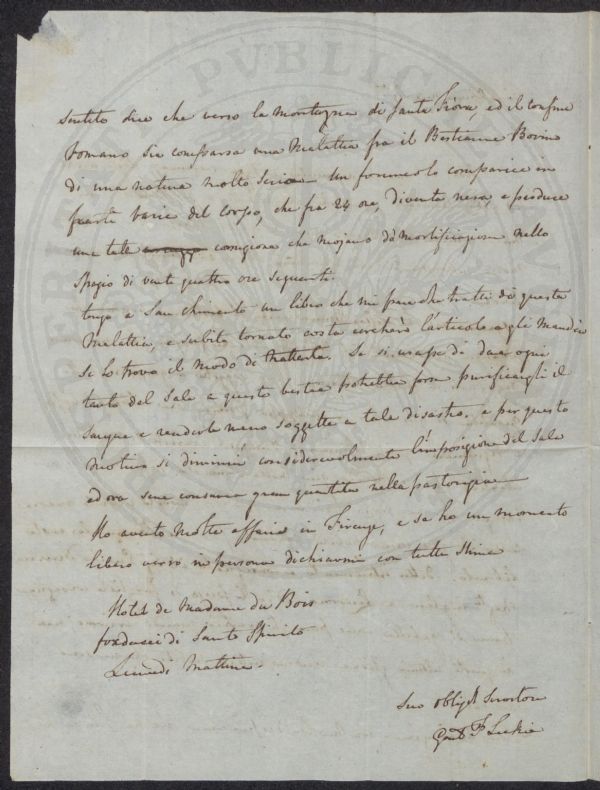 sentito dire che verso la montagna di Santa Fiora, ed il confine
Romano sia comparsa una Malattia fra il Bestiame Bovino
di una natura molto seria un foruncolo comparisce in
parte varie del corpo, che fra 24 ore, diventa nera, e produce
una tale corrigione che mojano dà mortificazione nello
Spazio di vente quattro ore seguenti.
tengo a San chimento un libro che mi pare che tratti di questa
Malattia, e subito tornato costa cercherò l'articolo e gli manderò
se lo trovo il modo di trattarla. Se si usasse di dare ogni
tanto del Sale a queste bestie potrebbe forse purificargli il
Sangue e renderle meno soggette a tale disastro. e per questo
motivo si diminuì considerevolmente l'imposizione del Sale
ed ora se ne consuma gran quantità nella pastorizia
Ho avuto molte affari in Firenze, e se ho un momento
libero verrò in persona dichiarmi con tutta stima
Hotel de Madame du Bois
fondacci di Santo Spirito
Lunedi Mattina.
Suo obligd Servitore
F Leckie